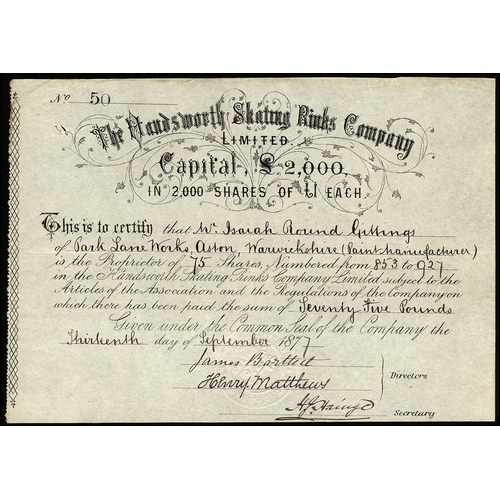 No 50
The Handsworth Skating Rinks Company
LIMITED.
Capital, £2,000,
IN 2,000 SHARES OF £1 EACH.
This is to certify that Mr Isaiah Round Gittings
of Park Lane Works, Aston, Warwickshire (Paint Manufacturer)
is the Proprietor of 75 Shares, Numbered from 853 to 927
in the Handsworth Skating Rinks Company Limited subject to the
Articles of the Association and the Regulations of the company on
which there has been paid the sum of Seventy Five Pounds
Given under the Common Seal of the Company the
Thirteenth day of September 1877
James Bartlett
Henry Matthews
Directors
Secretary